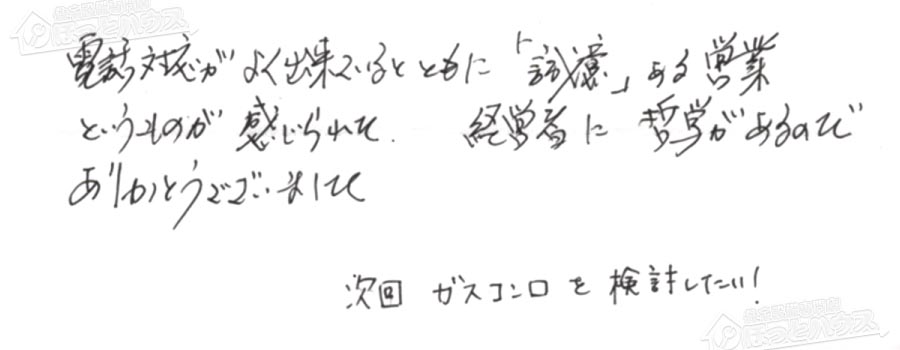 住宅設備専門店
ほっとハウス
電話対応がよく出来ているとともに「誠意」ある営業
というものが感じられた. 経営者に哲学があるので
ありがとうございました
次回 ガスコンロを検討したい!
住宅設備専門店
ほっとハウス